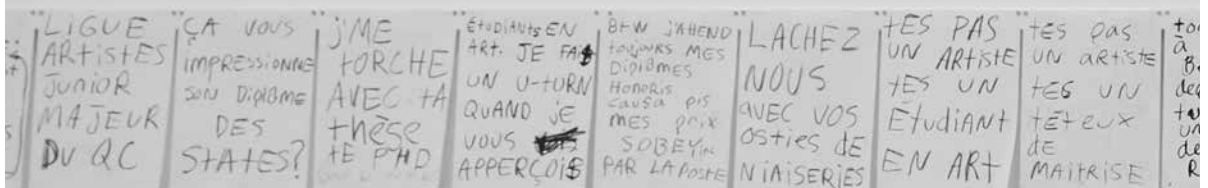 LIGUE
ARTISTES
JUNIOR
MAJEUR
DU QC
ÇA VOUS
IMPRESSIONNE
SON DIPLÔME
DES
STATES?
J'ME
TORCHE
AVEC TA
thèse
TE PHD
ÉTUDIANTS EN
ART. JE FAIS
UN U-TURN
QUAND JE
VOUS
APPERÇOIS
BTW J'AttEND
toujours MES
Diplômes
Honoris
causa pis
MES prix
SOBEY
PAR LA POSTE
LACHEZ
NOUS
AVEC VOS
OSTIES DE
NIAISERIES
tES PAS
UN ARTISTE
tES UN
Étudiant
EN ARt
tes pas
UN aRtiste
tES UN
têteux
de
MAITRISE